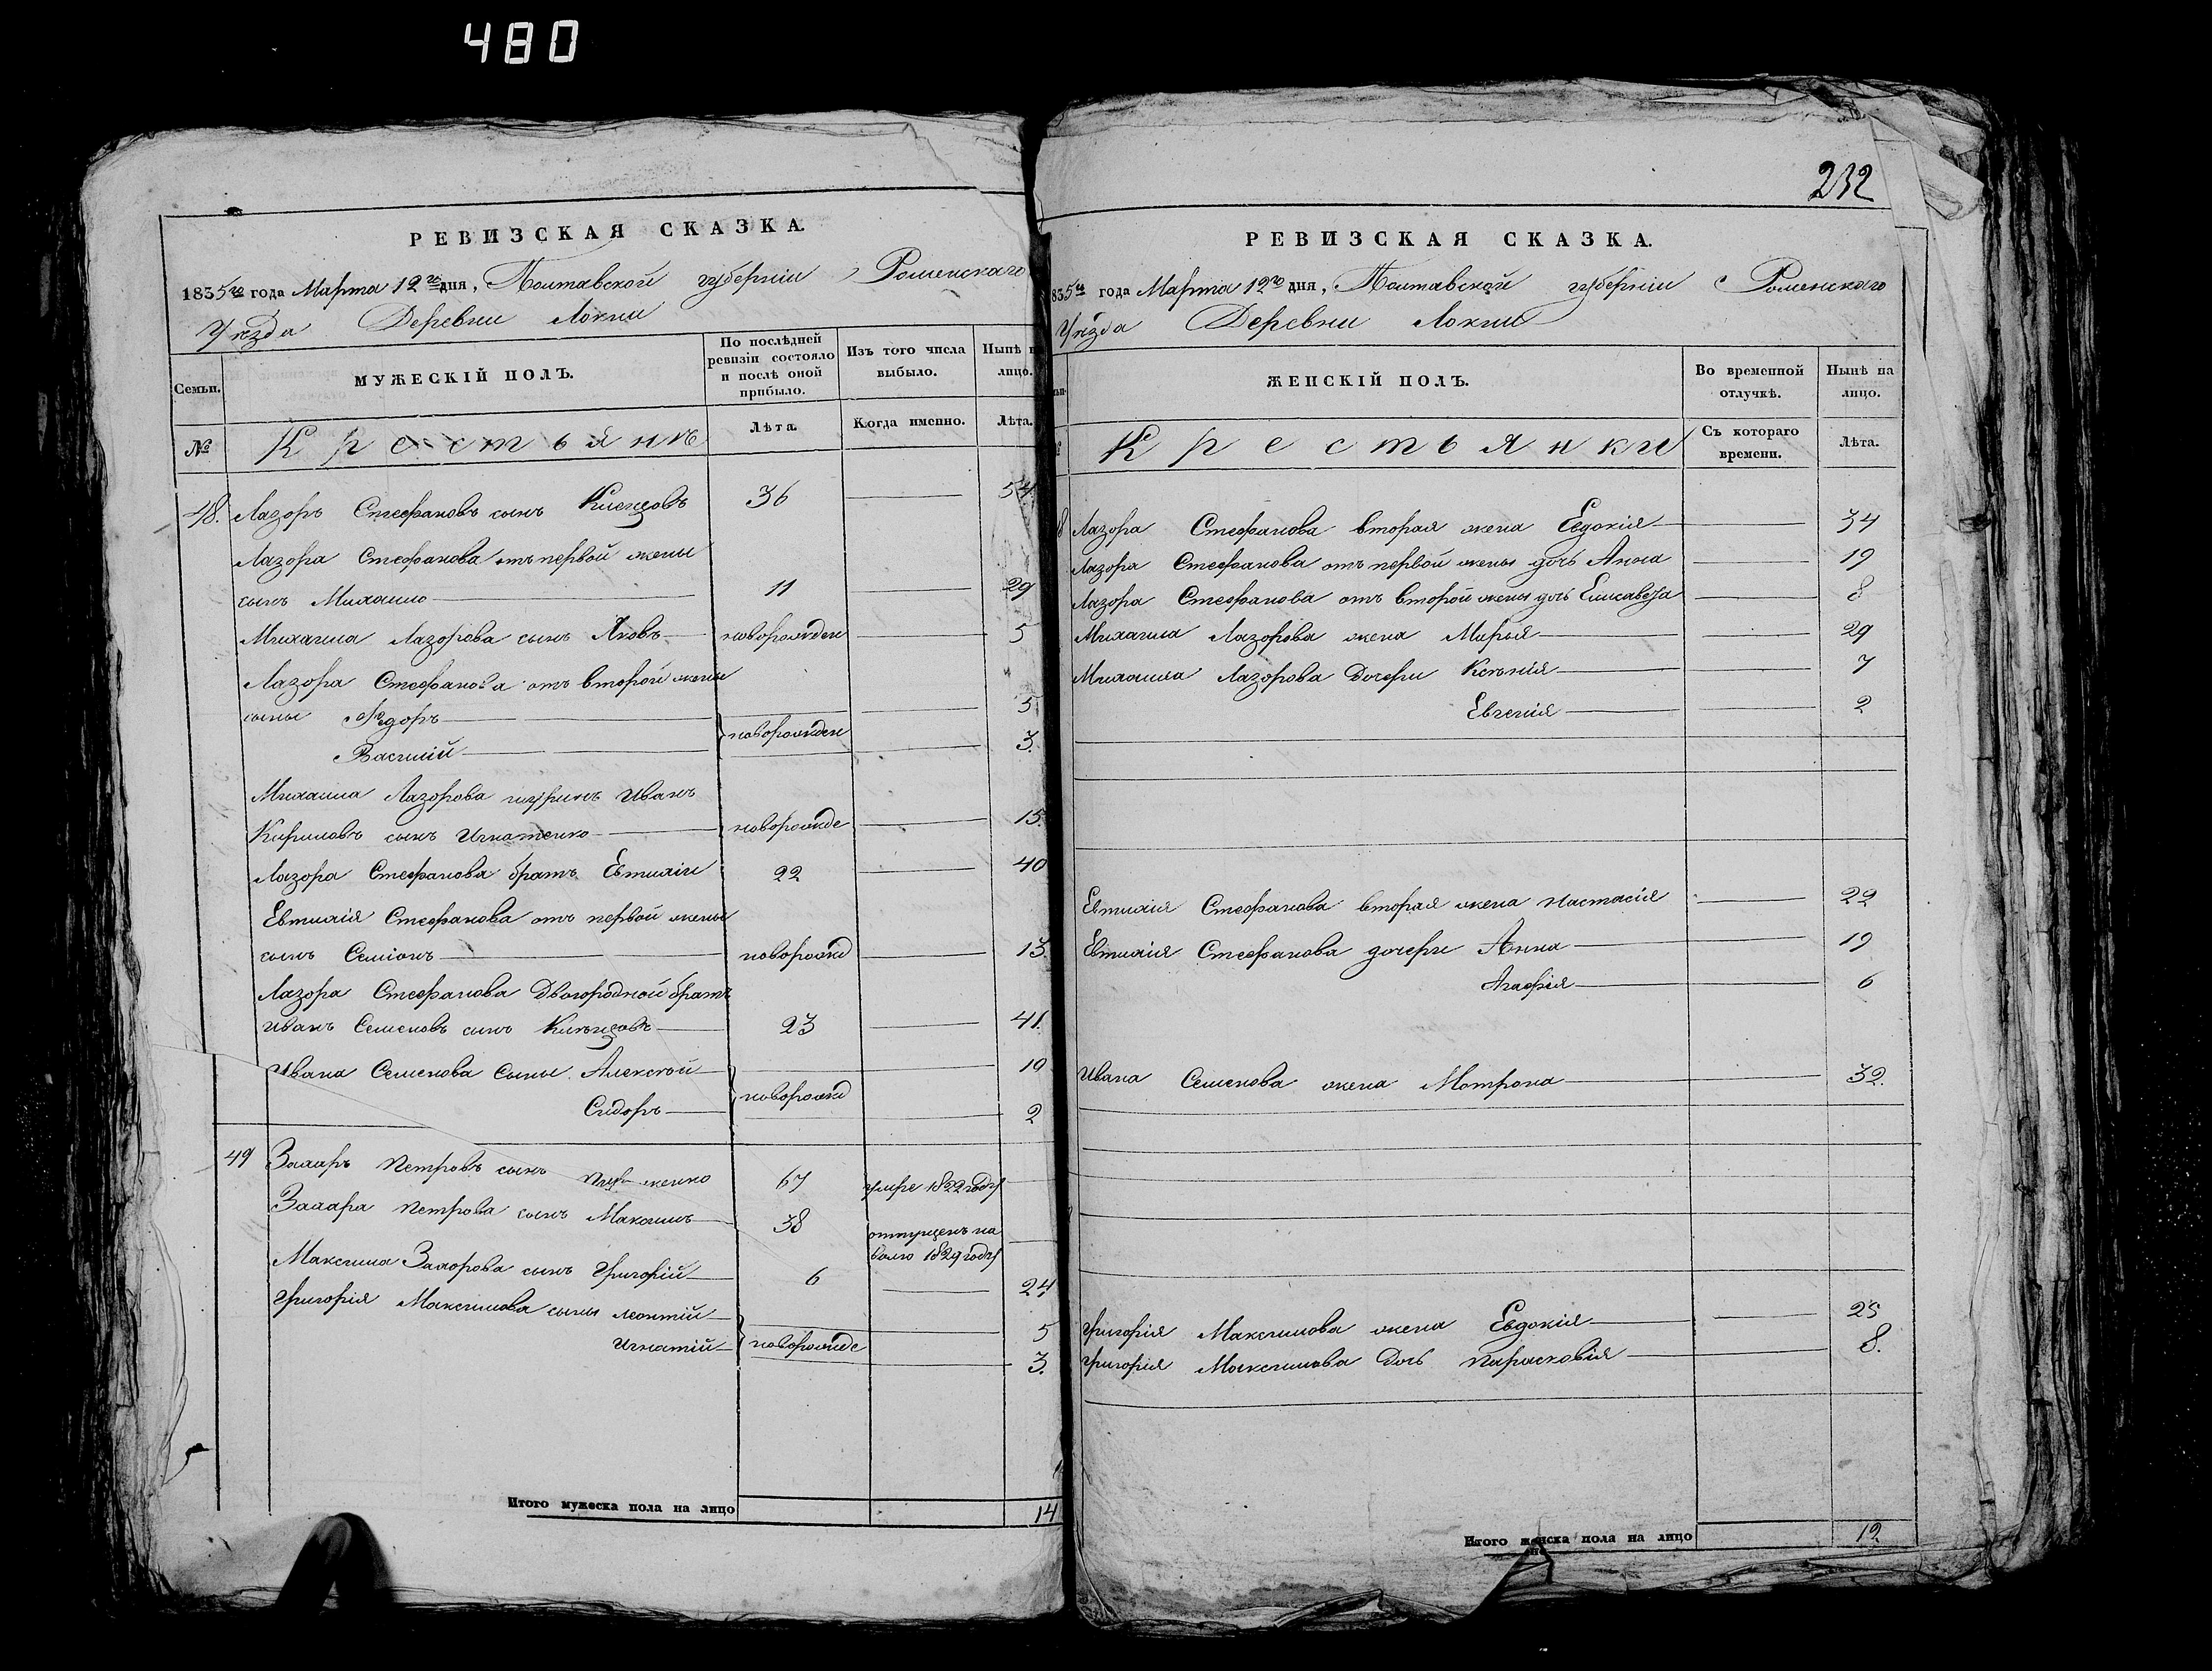 480
РЕВИЗСКАЯ СКАЗКА.
1835го года Марта 12го дня, Полтавской губерніи Роменскаго
Уѣзда Деревни Локни
Семьи.
МУЖЕСКІЙ ПОЛЪ.
По послѣдней ревизіи состояло и послѣ оной прибыло.
Изъ того числа выбыло.
Нынѣ лицо.
№
Крестьянѣ
Лѣта.
Когда именно.
Лѣта.
48. Лазоръ Стефановъ сынъ 36 54
Лазора Стефанова отъ первой жены
сынъ Михаило 11 29
Михаила Лазорова сынъ Яковъ новорожден 5
Лазора Стефанова отъ второй жены
сыны Ѳедоръ 5
новорожден
Василій 3.
Михаила Лазорова шуринъ Иванъ
Кириловъ сынъ Игнатенко новорожде 15.
Лазора Стефанова братъ Евтихій 22 40
Евтихія Стефанова отъ первой жены
сынъ Семіонъ новорожд 13
Лазора Стефанова Двоюродной братъ
Иванъ Семеновъ сынъ 23 41.
Ивана Семенова Сыны Алексѣй 10
новорожд
Сидоръ 2
49 Захаръ Петровъ сынъ 67 умре 1822 году
Захара Петрова сынъ Максимъ 38 отпущенъ на
волю 1829 году
Максима Захорова сынъ Григорій 6 24
Григорія Максимова сыны Леонтій 5
Игнатій новорожде 3.
Итого мужеска пола на лицо 14
232
РЕВИЗСКАЯ СКАЗКА.
835го года Марта 12го дня, Полтавской губерніи Роменскаго
Уѣзда Деревни Локни
ЖЕНСКІЙ ПОЛЪ.
Во временной отлучкѣ.
Нынѣ на лицо.
Крестьянки
Съ котораго времени.
Лѣта.
8 Лазора Стефанова вторая жена Евдокія 34
Лазора Стефанова отъ первой жены дочь Анна 19
Лазора Стефанова отъ второй жены дочь Елисавета 8
Михаила Лазорова жена Марья 29
Михаила Лазорова Дочери Ксенія 7
Евгенія 2
Евтихія Стефанова вторая жена Настасія 22
Евтихія Стефанова дочери Анна 19
Агафія 6
Ивана Семенова жена Мотрона 32.
Григорія Максимова жена Евдокія 25
Григорія Максимова Дочь Парасковія 8.
Итого женска пола на лицо 12